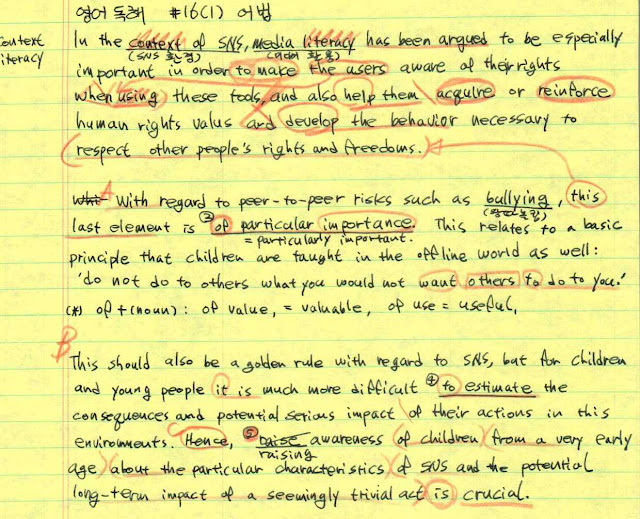 영어 독해 #16(1) 어법
Context
literacy
In the context of SNS, media literacy has been argued to be especially
(SNS 환경) (미디어 활용)
important in order to make the users aware of their rights
when using these tools, and also help them acquire or reinforce
human rights valus and develop the behavior necessary to
respect other people's rights and freedoms.
A
whi- With regard to peer-to-peer risks such as bullying, this
(왕따놀림)
last element is ② of particular importance. This relates to a basic
= particularly important.
principle that children are taught in the offline world as well:
'do not do to others what you would not want others to do to you.'
(*) of + (noun) : of value, = valuable, of use = useful,
B
This should also be a golden rule with regard to SNS, but for children
and young people it is much more difficult ④ to estimate the
consequences and potential serious impact of their actions in this
environments. Hence, ⑤ raise awareness of children from a very early
raising
age about the particular characteristics of SNS and the potential
long-term impact of a seemingly trivial act is crucial.